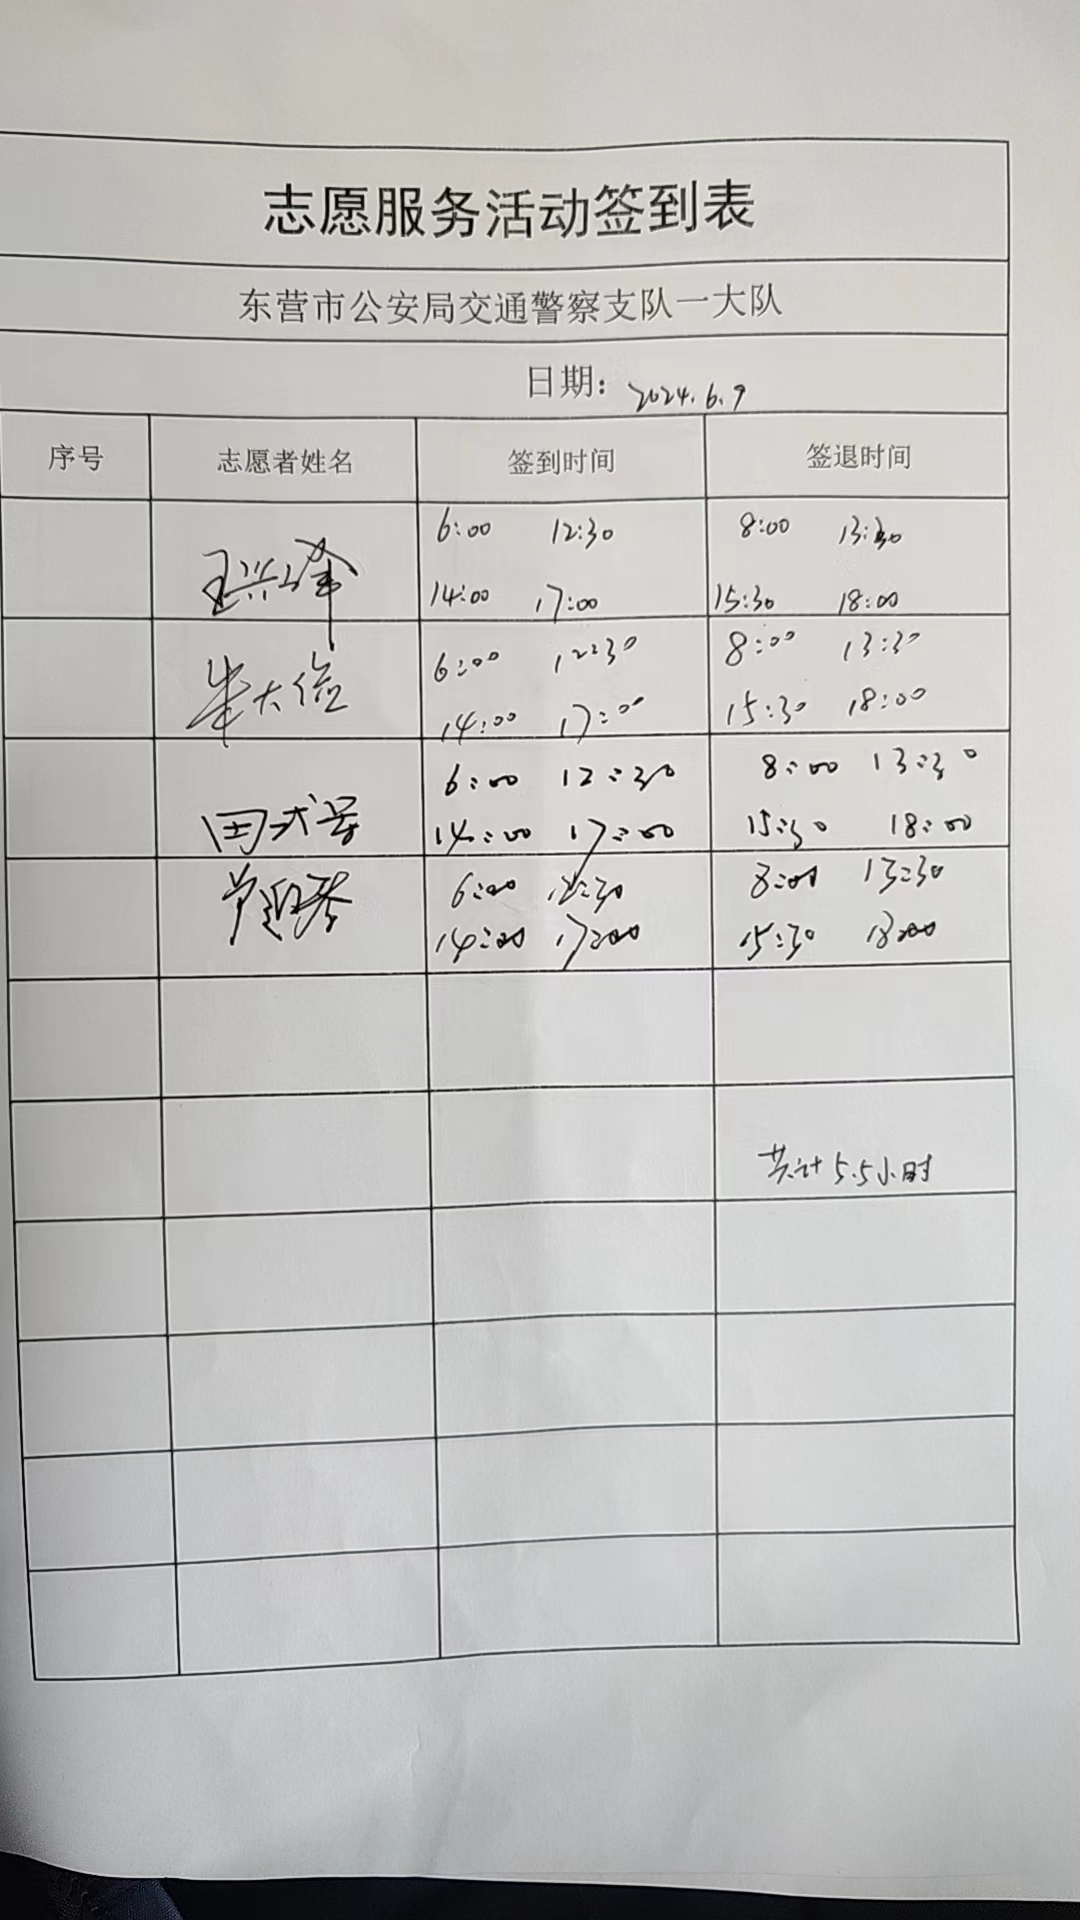 志愿服务活动签到表
东营市公安局交通警察支队一大队
日期：2024.6.9
序号 志愿者姓名 签到时间 签退时间
6:00 12:30 8:00 13:30
王兴峰
14:00 17:00 15:30 18:00
6:00 12:30 8:00 13:30
牟大俭
14:00 17:00 15:30 18:00
6:00 12:30 8:00 13:30
田
14:00 17:00 15:30 18:00
6:00 12:30 8:00 13:30
14:00 17:00 15:30 18:00
共计5.5小时